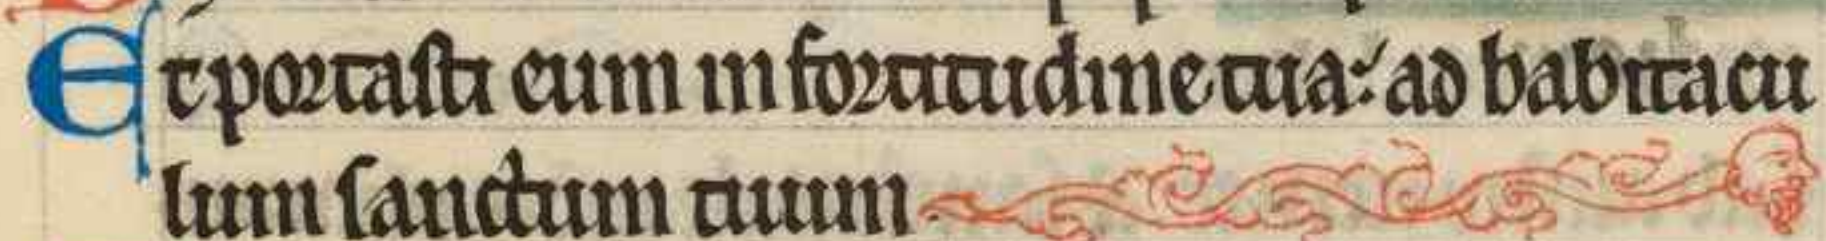 Et portasti eum in fortitudine tua: ad habitacu
lum sanctum tuum